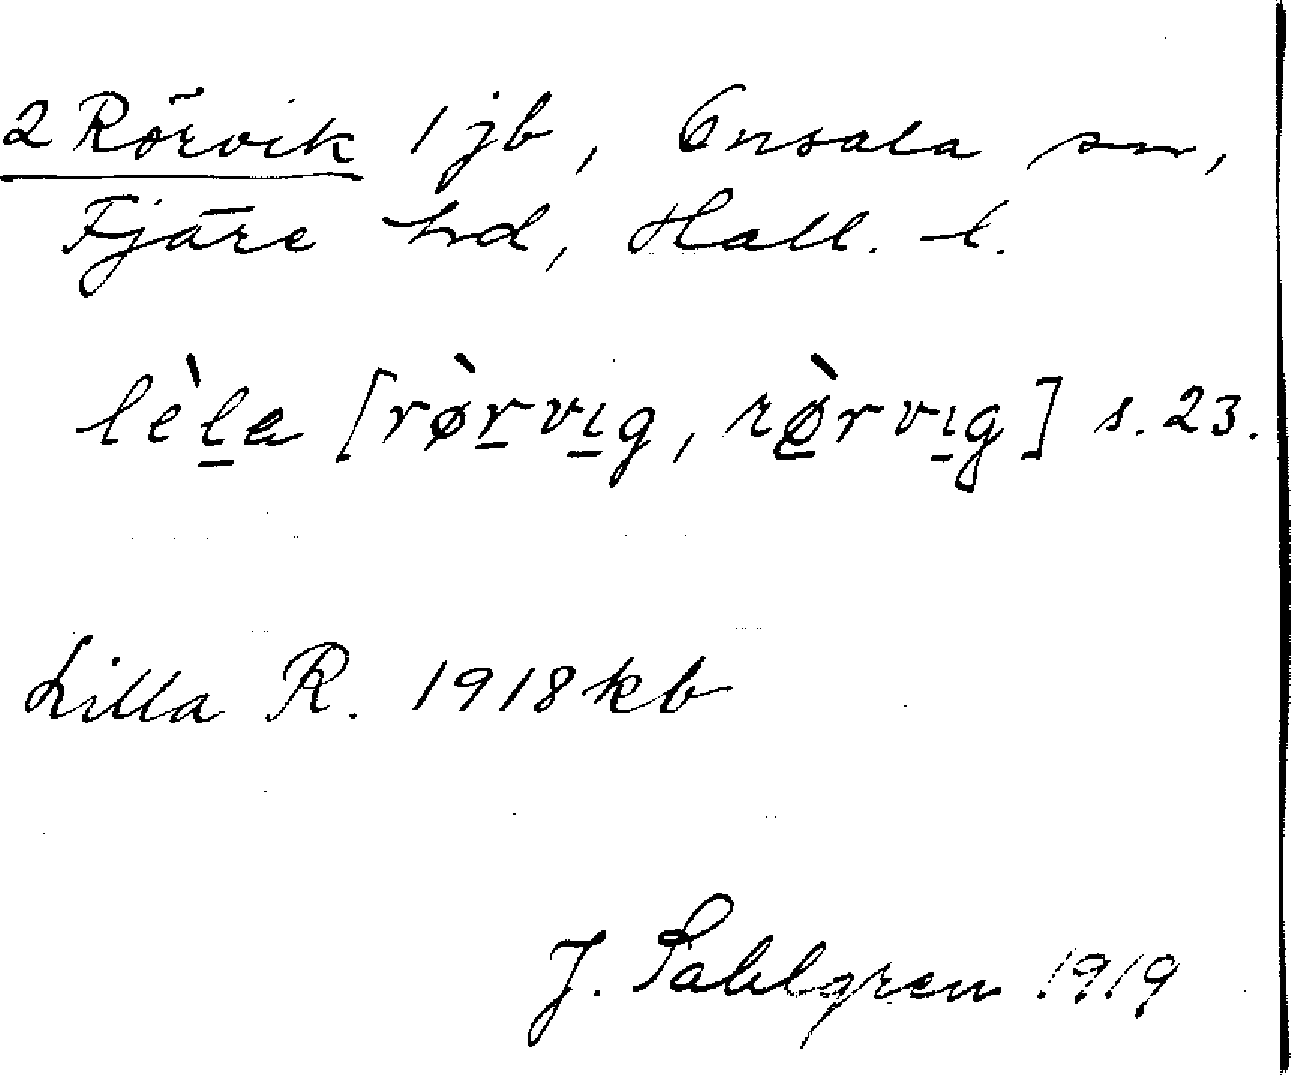 2 Rörvik 1 jb, Onsala sn,
Fjäre hd, Hall. l.
lèl̠a [rø̀r̠vı̠g, rø̠̀rvı̠g] s. 23.
Lilla R. 1918 kb
J. Sahlgren 1919